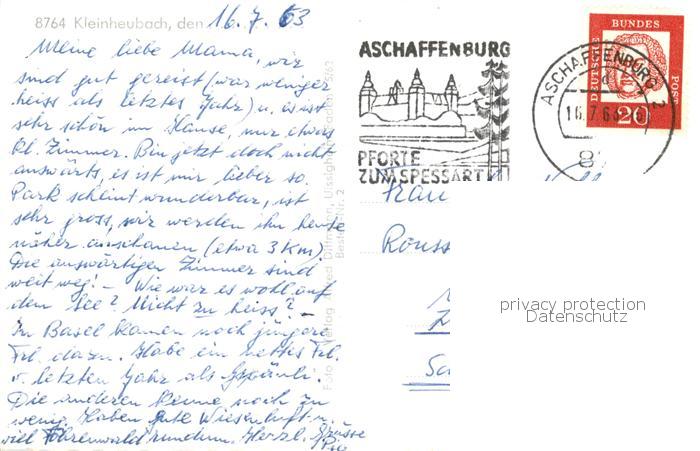 8764 Kleinheubach, den 16.7.63
Meine liebe Mama, wir
sind gut gereist (war weniger
heiss als letztes Jahr) u. es ist
sehr schön im Hause, nur etwas
kl. Zimmer. Bin jetzt doch nicht
auswärts, es ist mir lieber so.
Park scheint wunderbar, ist
sehr gross, wir werden ihn heute
näher anschauen (etwa 3 Km).
Die auswärtigen Zimmer sind
weit weg! – Wie war es wohl auf
dem See? Nicht zu heiss? –
In Basel kamen noch jüngere
Frl. dazu. Habe ein nettes Frl.
v. letzten Jahr als Gspänli.
Die anderen kenne noch zu
wenig. Haben gute Wiesenluft u.
viel Föhrenwald rundum. Herzl. Grüsse
Bestell-Nr. 2
ASCHAFFENBURG
PFORTE
ZUM SPESSART
ASCHAFFENBURG 2
16.7.63
DEUTSCHE BUNDESPOST
20
Frau
Rouss
privacy protection
Datenschutz